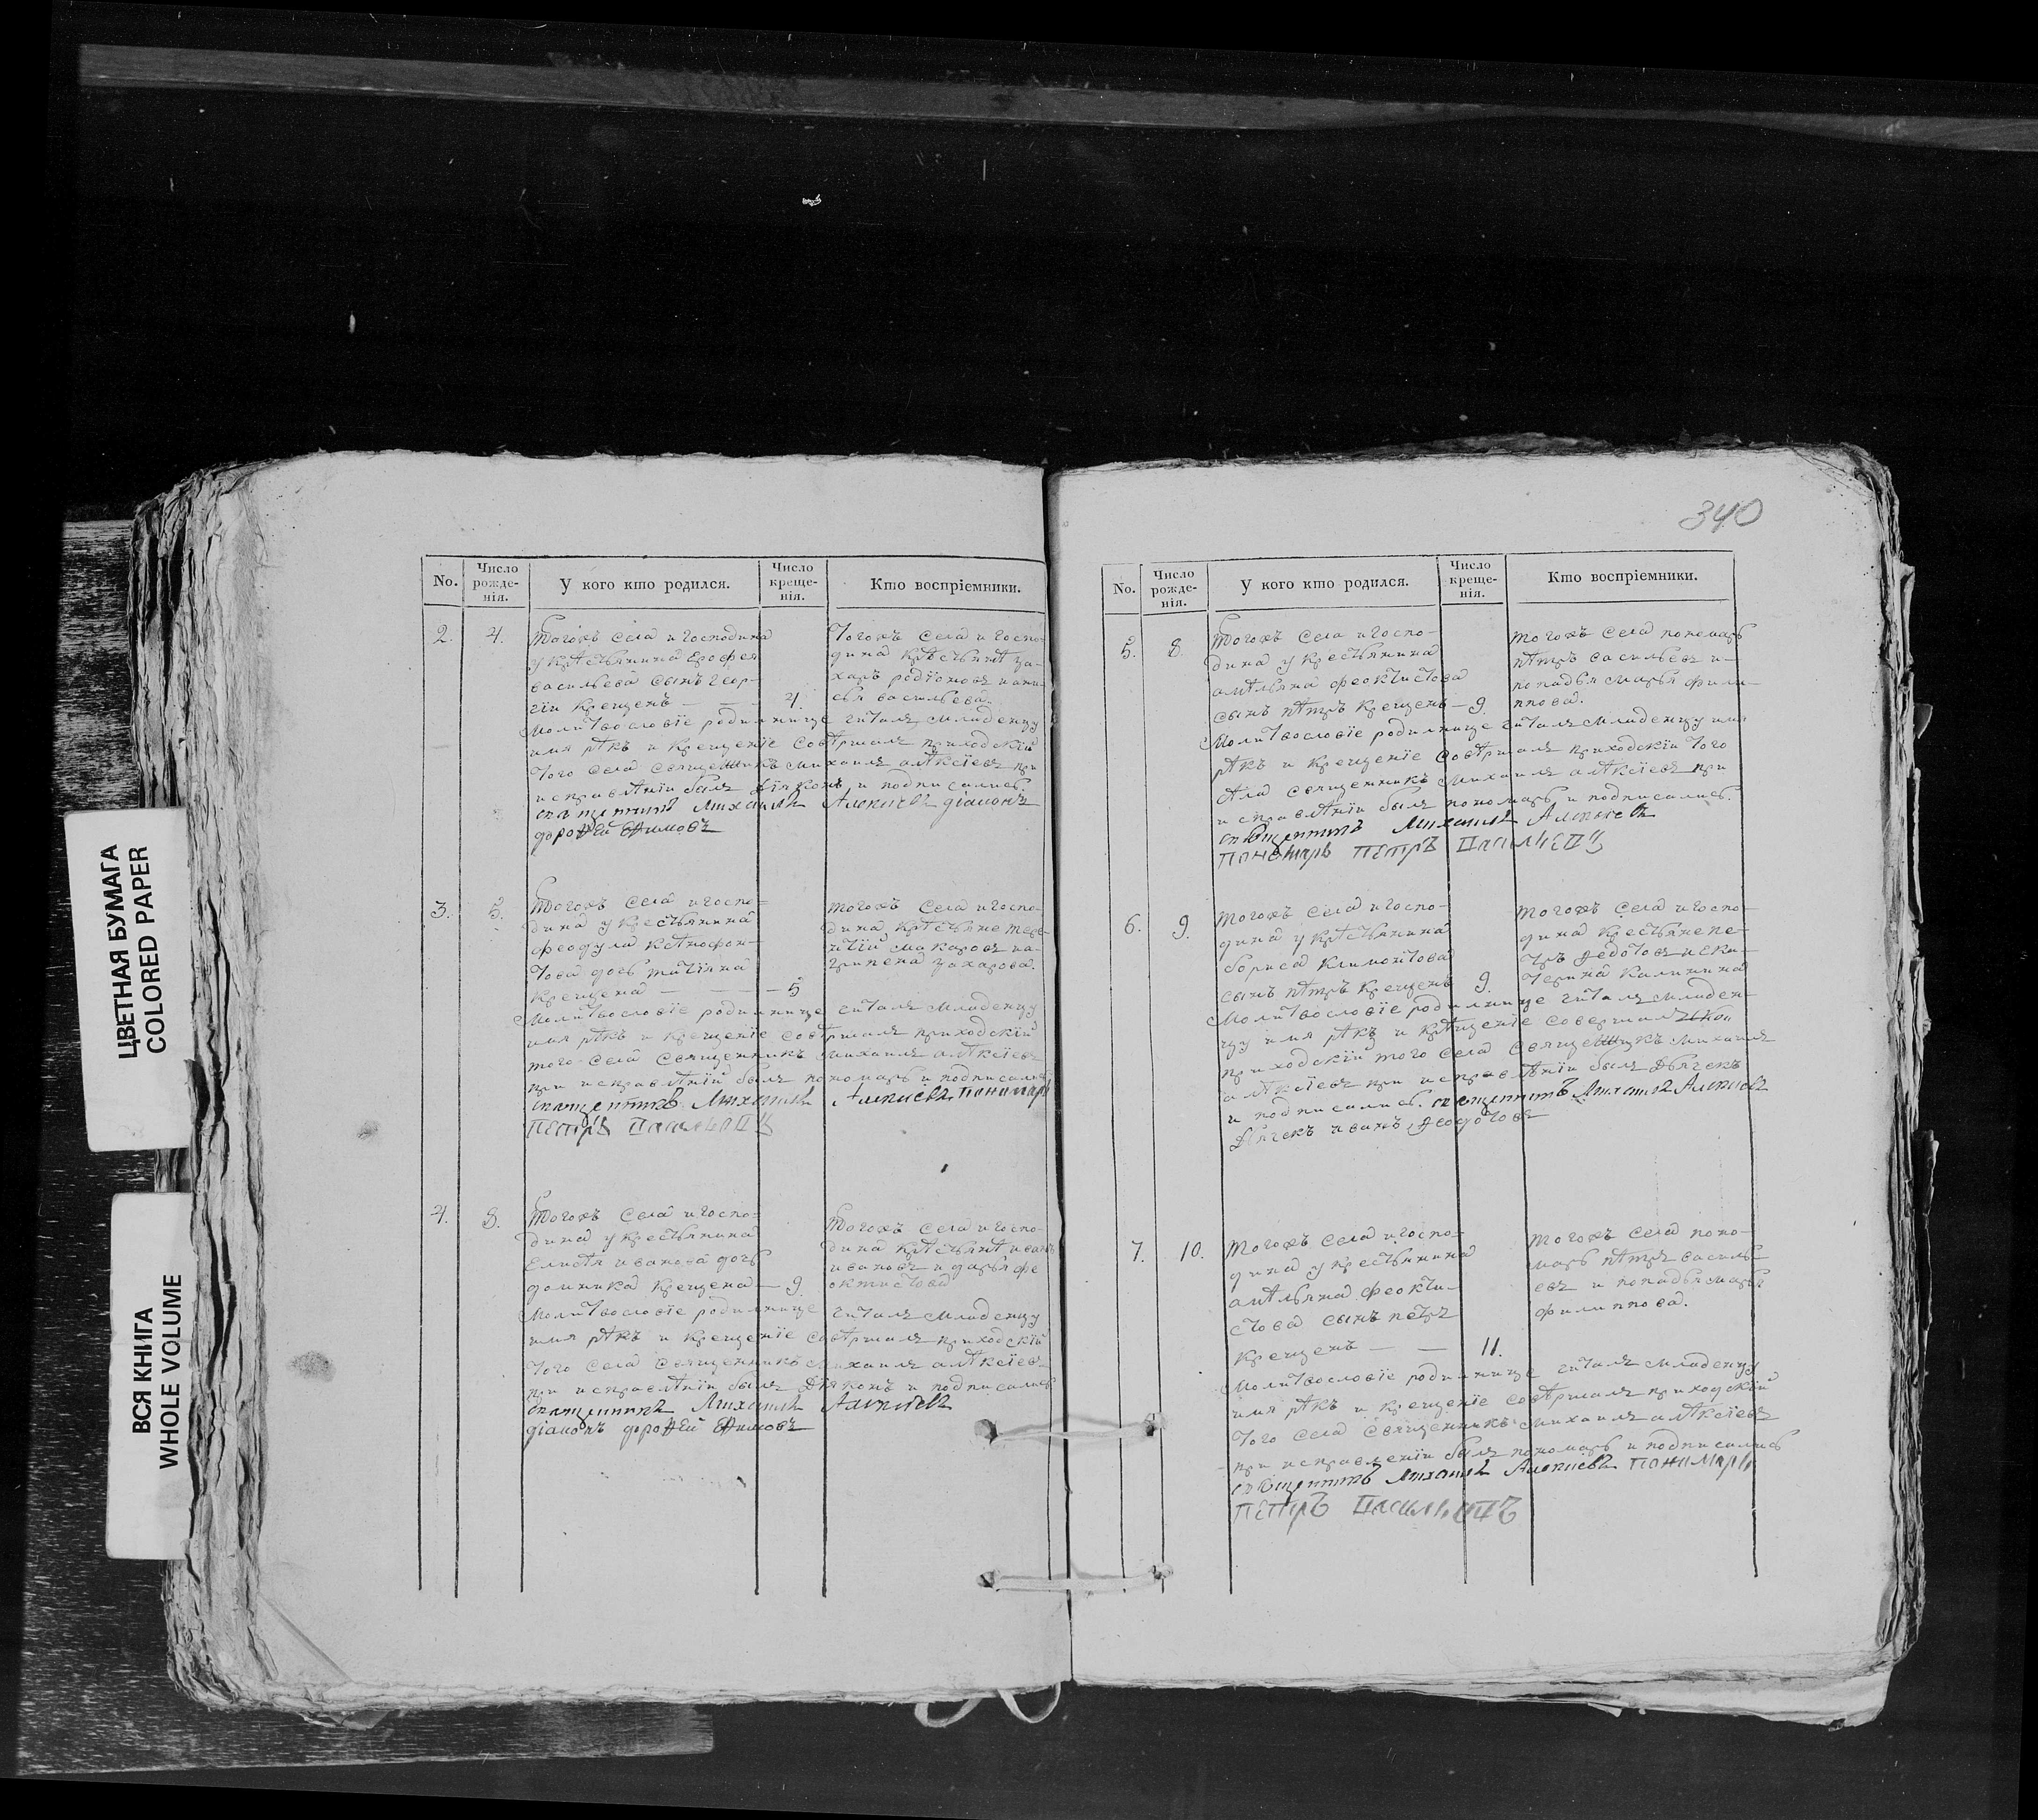 340
ЦВЕТНАЯ БУМАГА
COLORED PAPER
ВСЯ КНИГА
WHOLE VOLUME
No.
Число рожденія.
У кого кто родился.
Число крещенія.
Кто воспріемники.
2.
4.
Тогожъ села и господина
у крѣстьянина Ерофея
васильева сынъ геор-
гіи крещенъ — — — 4.
Тогожъ села и госпо-
дина крѣстьянѣ за-
харъ родіоновъ и ани-
сья васильева.
Молитвословіе родилнице читалъ младенцу
имя рѣкъ и крещеніе совѣршалъ приходскій
того села священникъ михаилъ алѣксіевъ при
исправлѣніи былъ діяконъ и подписались.
священникъ Михаилъ Алексіевъ діаконъ
дорофей
3.
5.
Тогожъ села и госпо-
дина у крестьянина
феодула ксѣнофон-
това дочь татіяна
крещена — — — 5
тогожъ села и госпо-
дина крѣстьяне тере-
нтіи макаровъ и а-
грипена захарова.
Молитвословіе родилнице читалъ младенцу
имя рѣкъ и крещеніе совѣршалъ приходскій
того села священникъ михаилъ алѣксіевъ
при исправлѣніи былъ пономарь и подписались
священникъ Михаилъ Алексіевъ Пономарь
Петръ Василіевъ
4.
8.
Тогожъ села и госпо-
дина у крестьянина
Елисѣя иванова дочь
домника крещена — 9
Тогожъ села и госпо-
дина крѣстьянѣ иванъ
ивановъ и дарья фе
октистова
Молитвословіе родилнице читалъ младенцу
имя рѣкъ и крещеніе совѣршалъ приходскій
того села священникъ михаилъ алѣксіевъ
при исправлѣніи былъ діяконъ и подписались
священникъ Михаилъ Алексіевъ
діаконъ дорофей
No.
Число рожденія.
У кого кто родился.
Число крещенія.
Кто воспріемники.
5.
8.
Тогожъ села и госпо-
дина у крестьянина
амѣльяна феоктистова
сынъ пѣтръ крещенъ — 9
тогожъ села пономарь
пѣтръ васильевъ и
попадья марья фили-
ппова.
Молитвословіе родилнице читалъ младенцу имя
рѣкъ и крещеніе совѣршалъ приходскіи того
села священникъ михаилъ алѣксіевъ при
исправлѣніи былъ пономарь и подписались.
священникъ Михаилъ Алексіевъ
Пономарь Петръ Василіевъ
6.
9.
тогожъ села и госпо-
дина у крѣстьянина
бориса климонтова
сынъ пѣтръ крещенъ 9.
тогожъ села и госпо-
дина крестьяне пе-
тръ федотовъ и ека-
терина калинина
Молитвословіе родилнице читалъ младен-
цу имя рѣкъ и крѣщеніе совершалъ
приходскій того села священикъ михаилъ
алѣксіевъ при исправлѣніи былъ дьячекъ
и подписались. священникъ Михаилъ Алексіевъ
Дьячекъ иванъ федотовъ
7.
10.
тогожъ села и госпо-
дина у крестьянина
амѣльяна феокти-
стова сынъ петръ
крещенъ — — 11.
тогожъ села поно-
марь пѣтръ василь-
евъ и попадья марья
филиппова.
Молитвословіе родилнице читалъ младенцу
имя рѣкъ и крещеніе совѣршалъ приходскій
того села священникъ михаилъ алѣксіевъ
при исправленіи былъ пономарь и подписались
священникъ Михаилъ Алексіевъ Пономарь
Петръ Василіевъ